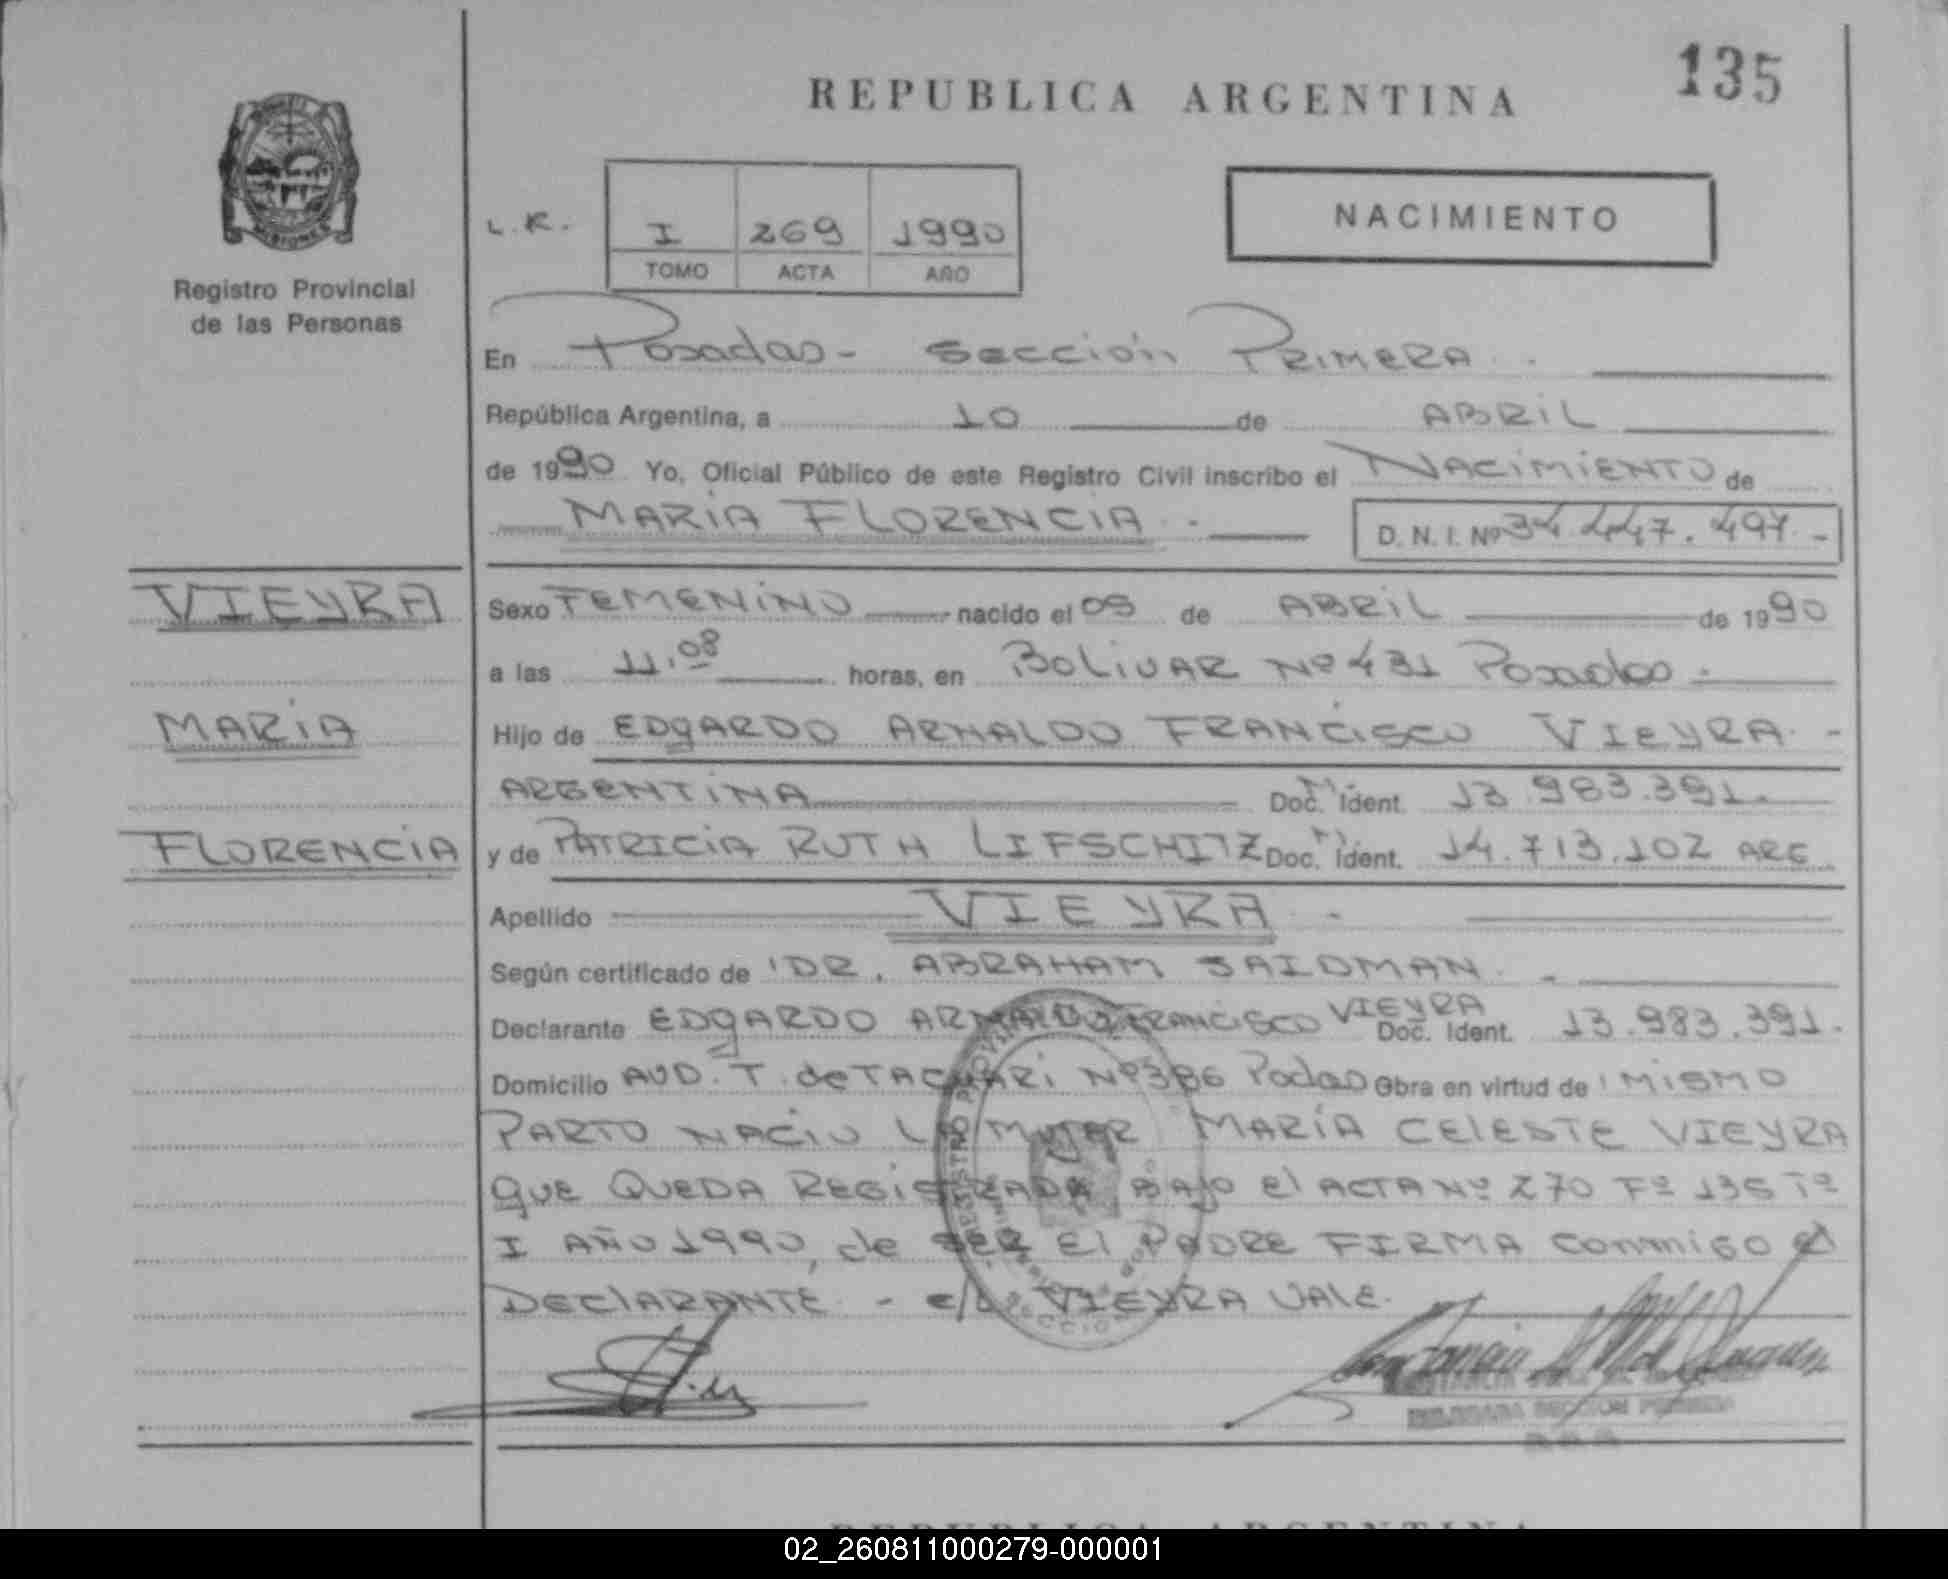 135
REPUBLICA ARGENTINA
MISIONES
Registro Provincial
de las Personas
L.R.
I 269 1990
TOMO ACTA AÑO
NACIMIENTO
En Posadas - Sección PRIMERA.
República Argentina, a 10 de ABRIL
de 1990 Yo, Oficial Público de este Registro Civil inscribo el NACIMIENTO de
MARIA FLORENCIA.- D. N. I. Nº 34.447.497.-
VIEYRA
MARIA
FLORENCIA
Sexo FEMENINO nacido el 05 de ABRIL de 1990
a las 11,08 horas, en BOLIVAR Nº 431 Posadas.
Hijo de EDgARDO ARNALDO FRANCISCO VIEYRA.-
ARGENTINA Doc. Ident. 13.983.391.
y de PATRICIA RUTH LIFSCHITZ Doc. Ident. 14.713.102 ARG.
Apellido VIEYRA.-
Según certificado de DR. ABRAHAM SAIDMAN.-
Declarante EDgARDO ARNALDO FRANCISCO VIEYRA Doc. Ident. 13.983.391.
Domicilio AVD. T. de TACUARI Nº 386 Podas Obra en virtud de MISMO
PARTO NACIO LA MUJER MARÍA CELESTE VIEYRA
QUE QUEDA REGISTRADA BAJO El ACTA Nº 270 Fº 135 Tº
I AÑO 1990, de SER El PADRE FIRMA CONMIGO el
DECLARANTE.- e/l VIEYRA VALE.
REGISTRO PROVINCIAL
DELEGADA SECCION PRIMERA
REPUBLICA ARGENTINA
02_260811000279-000001